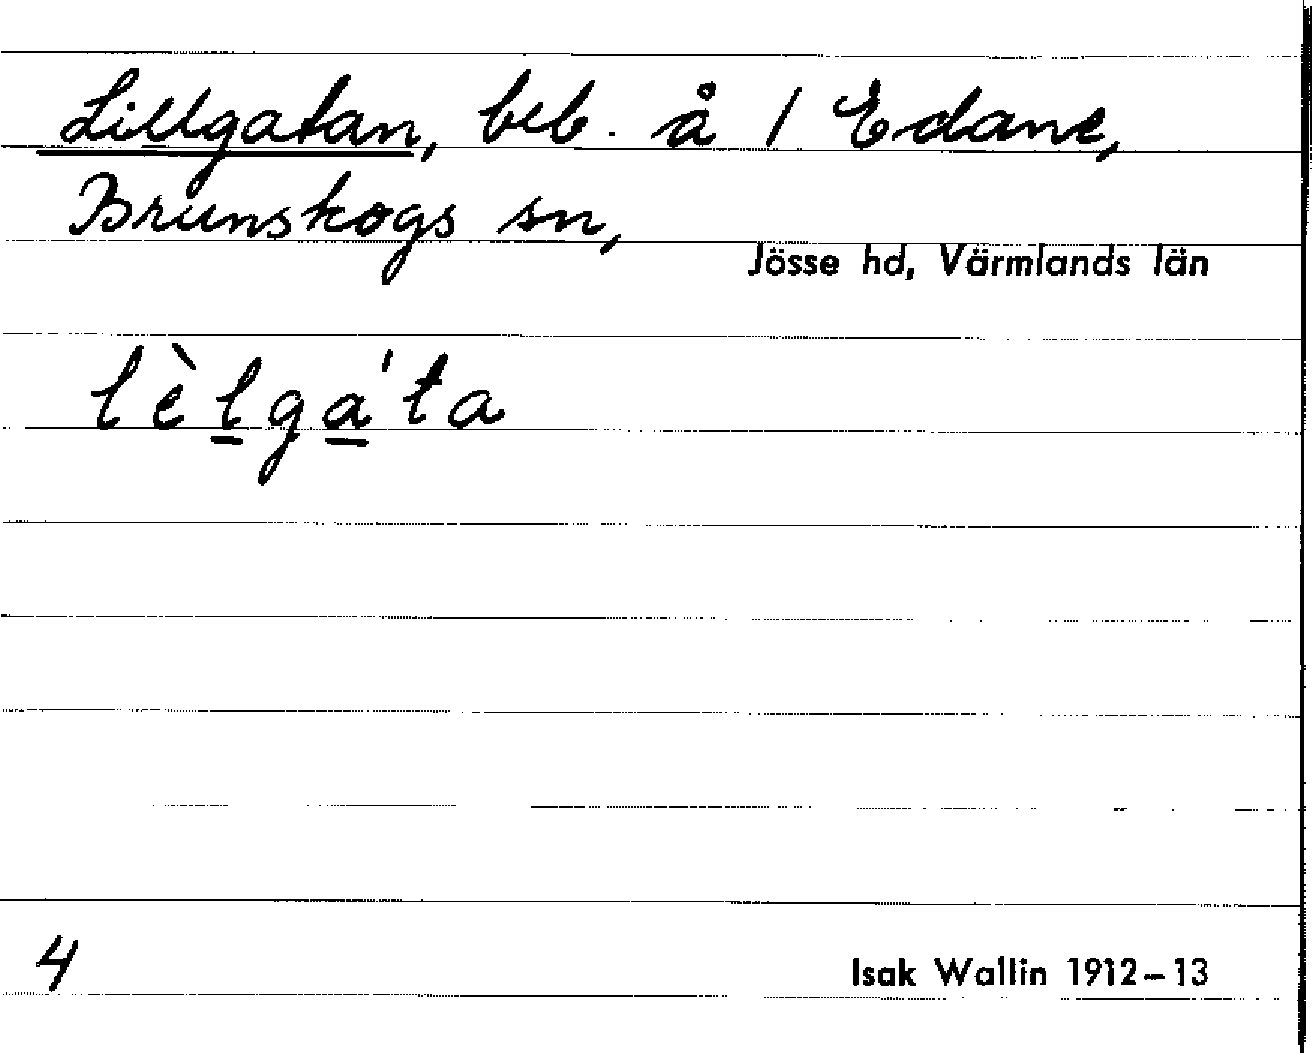 Lillgatan, beb. å 1 Edane,
Brunskogs sn,
Jösse hd, Värmlands län
lèl̲ga̲'ta
4
Isak Wallin 1912–13